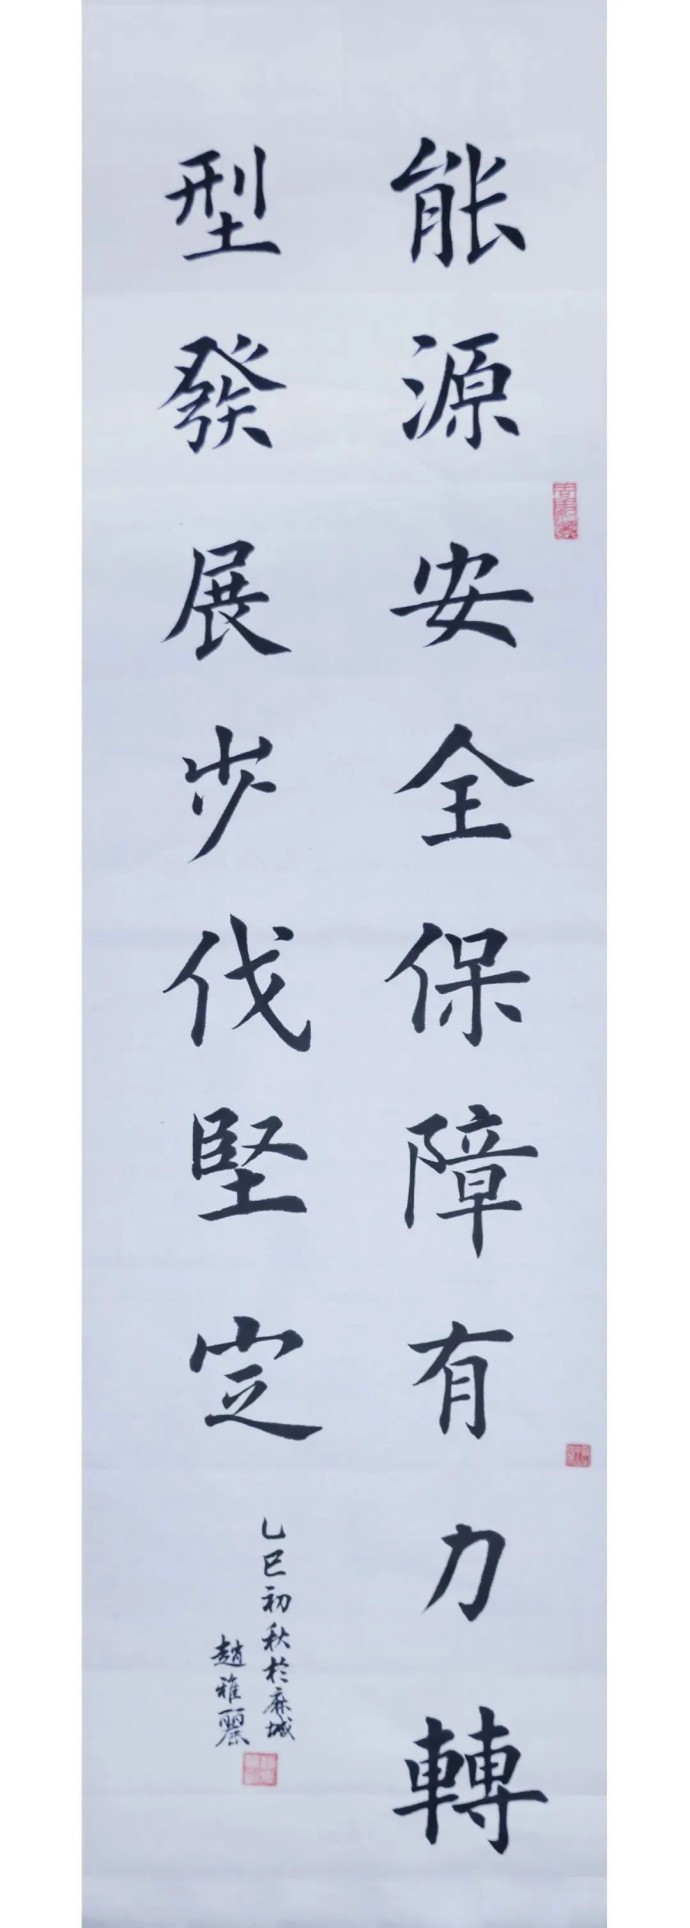 能源安全保障有力轉
型發展步伐堅定
乙巳初秋於麻城
趙雅麗